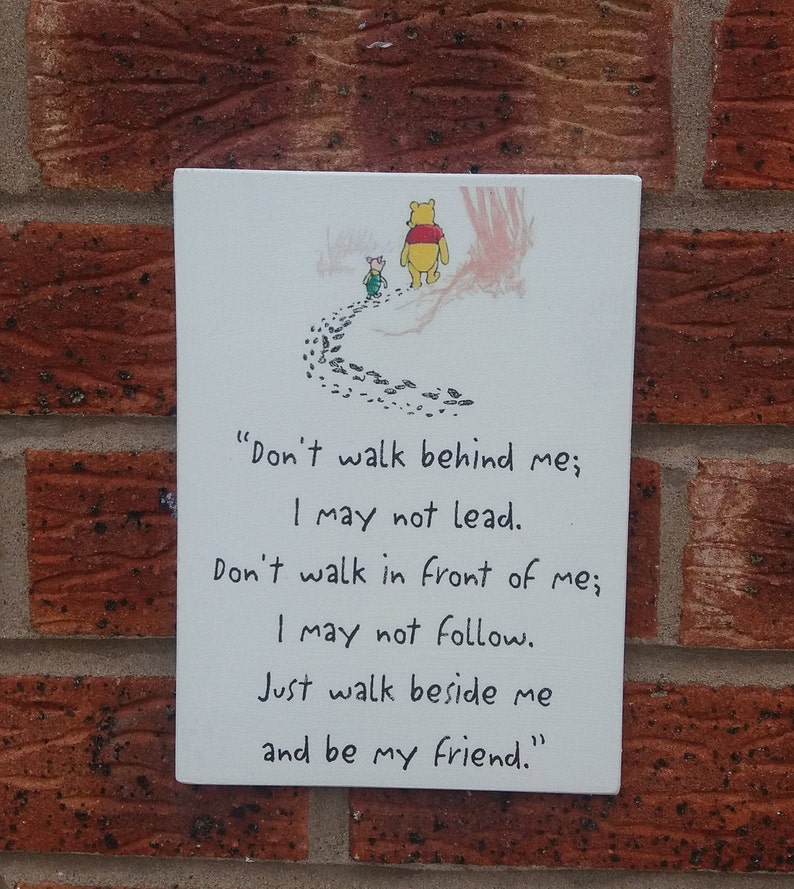 "Don't walk behind me;
I may not lead.
Don't walk in front of me;
I may not follow.
Just walk beside me
and be my friend."